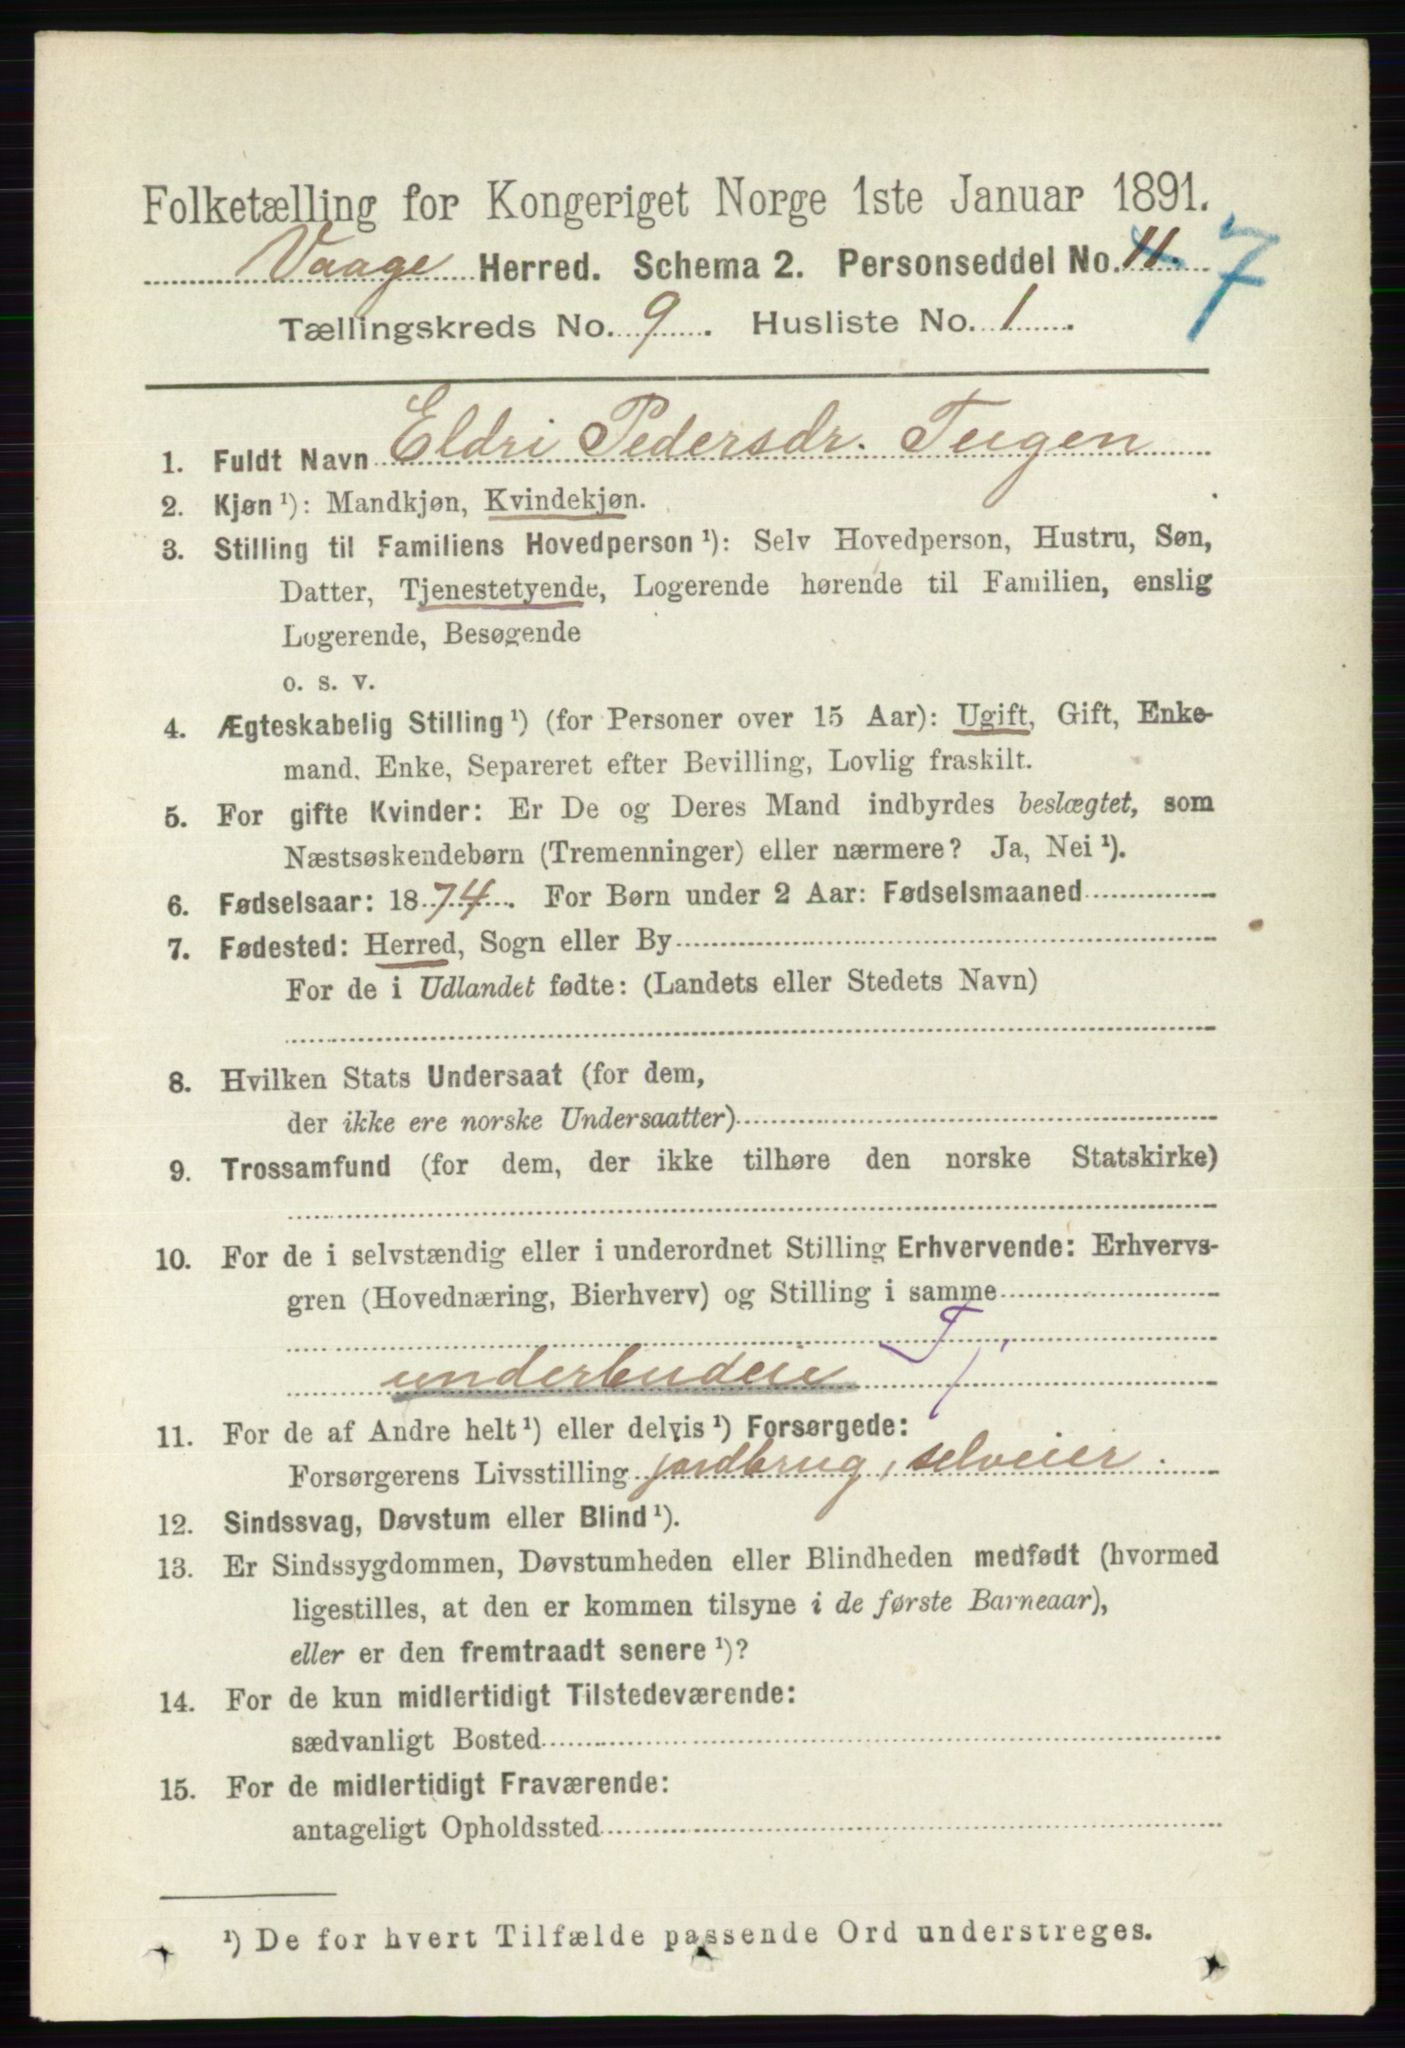 Folketælling for Kongeriget Norge 1ste Januar 1891.
Vaage Herred. Schema 2. Personseddel No. 11. 7
Tællingskreds No. 9. Husliste No. 1.
1. Fuldt Navn Eldri Pedersdr. Teigen
2. Kjøn ¹): Mandkjøn, Kvindekjøn.
3. Stilling til Familiens Hovedperson ¹): Selv Hovedperson, Hustru, Søn,
Datter, Tjenestetyende, Logerende hørende til Familien, enslig
Logerende, Besøgende
o. s. v.
4. Ægteskabelig Stilling ¹) (for Personer over 15 Aar): Ugift, Gift, Enke-
mand, Enke, Separeret efter Bevilling, Lovlig fraskilt.
5. For gifte Kvinder: Er De og Deres Mand indbyrdes beslægtet, som
Næstsøskendebørn (Tremenninger) eller nærmere? Ja, Nei ¹).
6. Fødselsaar: 1874. For Børn under 2 Aar: Fødselsmaaned
7. Fødested: Herred, Sogn eller By
For de i Udlandet fødte: (Landets eller Stedets Navn)
8. Hvilken Stats Undersaat (for dem,
der ikke ere norske Undersaatter)
9. Trossamfund (for dem, der ikke tilhøre den norske Statskirke)
10. For de i selvstændig eller i underordnet Stilling Erhvervende: Erhvervs-
gren (Hovednæring, Bierhverv) og Stilling i samme
T
underbudeie
11. For de af Andre helt ¹) eller delvis ¹) Forsørgede:
Forsørgerens Livsstilling jordbrug, selveier.
12. Sindssvag, Døvstum eller Blind ¹).
13. Er Sindssygdommen, Døvstumheden eller Blindheden medfødt (hvormed
ligestilles, at den er kommen tilsyne i de første Barneaar),
eller er den fremtraadt senere ¹)?
14. For de kun midlertidigt Tilstedeværende:
sædvanligt Bosted
15. For de midlertidigt Fraværende:
antageligt Opholdssted
¹) De for hvert Tilfælde passende Ord understreges.